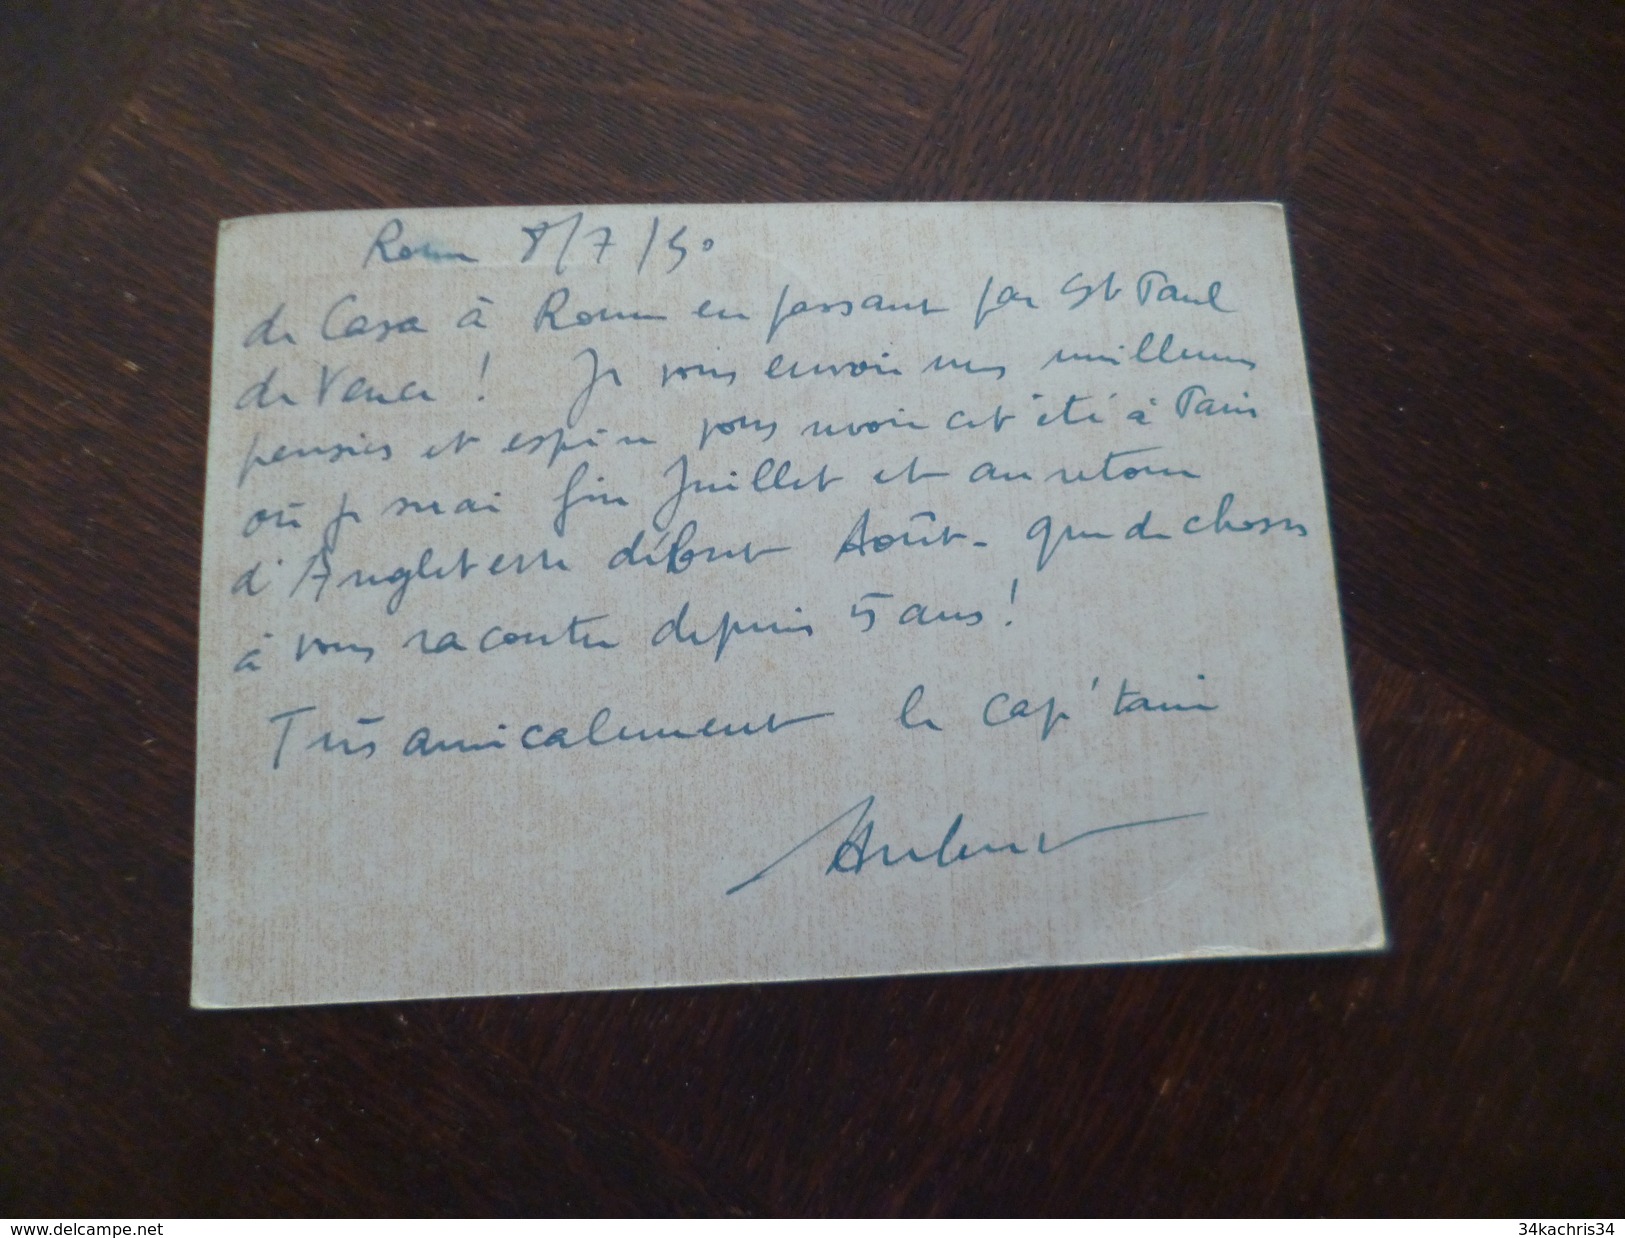 Rome 8/7/50
de Casa à Rome en passant par St Paul
de Vence ! Je vous envoie mes meilleures
pensées et espère vous revoir cet été à Paris
où je serai fin Juillet et au retour
d'Angleterre début Août - que de choses
à vous raconter depuis 5 ans !
Très amicalement le capitaine
www.delcampe.net
34kachris34